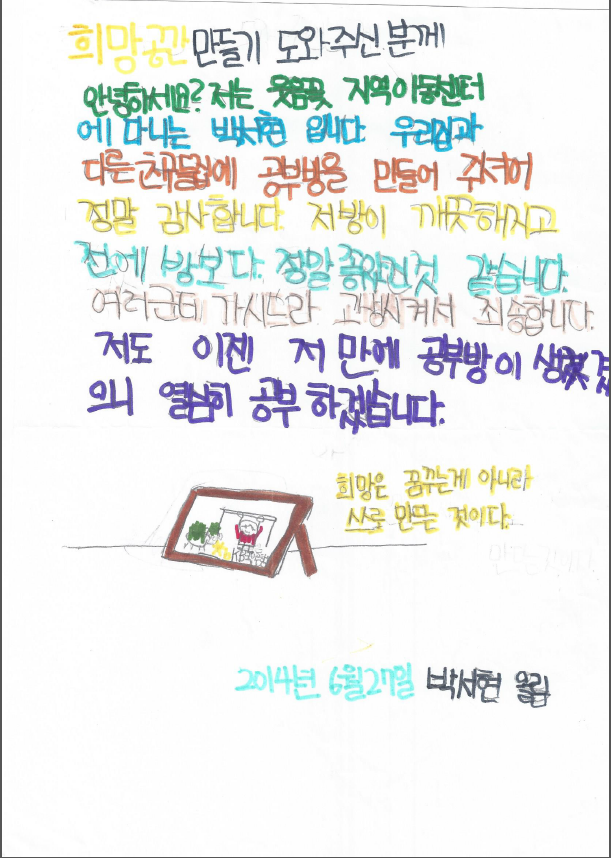 희망공간 만들기 도와주신 분께
안녕하세요? 저는 웃음꽃 지역아동센터
에 다니는 박서현 입니다. 우리집과
다른친구들집에 공부방을 만들어 주셔어
정말 감사합니다. 저방이 깨끗해지고
전에 방보다. 정말 좋아진것 같습니다.
여러군데 가시느라 고생시켜서 죄송합니다.
저도 이젠 저 만에 공부방이 생겼
으니 열심히 공부 하겠습니다.
희망은 꿈꾸는게 아니라
스로 만드는 것이다.
2014년 6월27일 박서현 올림